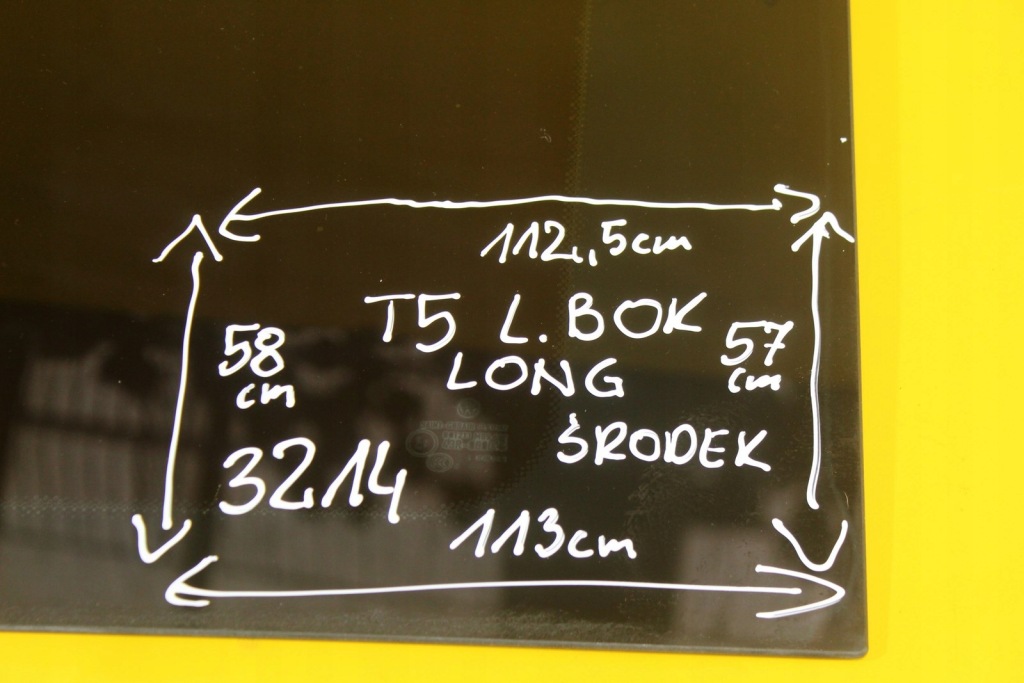 112,5cm
T5 L.BOK
LONG
58
cm
57
cm
ŚRODEK
3214
113cm